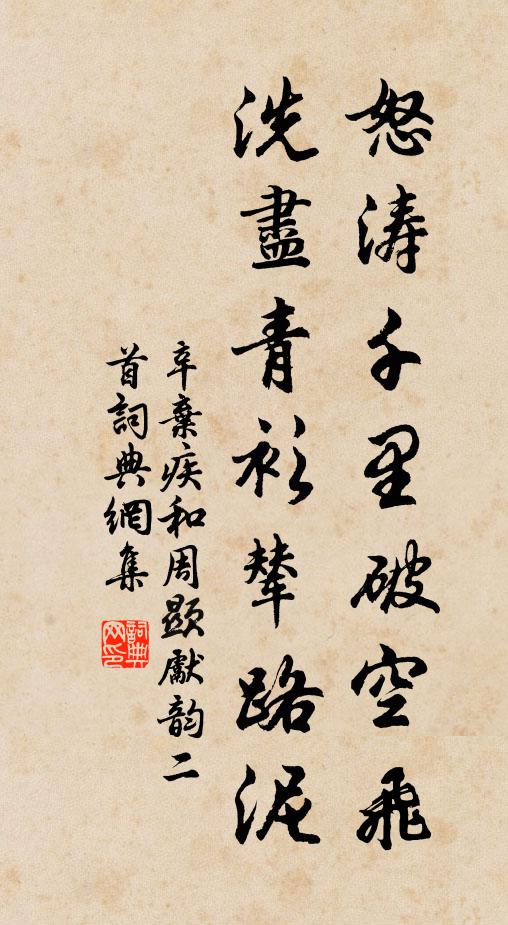 怒涛千里破空飛
洗盡青衫輦路泥
辛棄疾和周顯獻韵二
首詞典網集
詞典网印